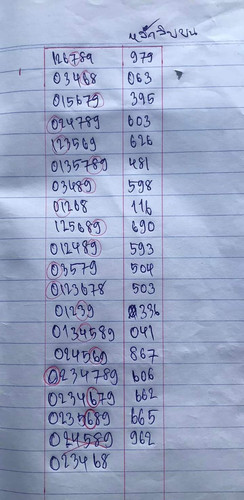 หลักสิบบน
126789 979
03468 063
015679 395
024789 603
123569 626
0135789 481
03489 598
01268 116
125689 690
012489 593
03579 504
0123678 503
01239 336
0134589 041
024569 867
0234789 606
0234679 662
0235689 665
024589 962
023468